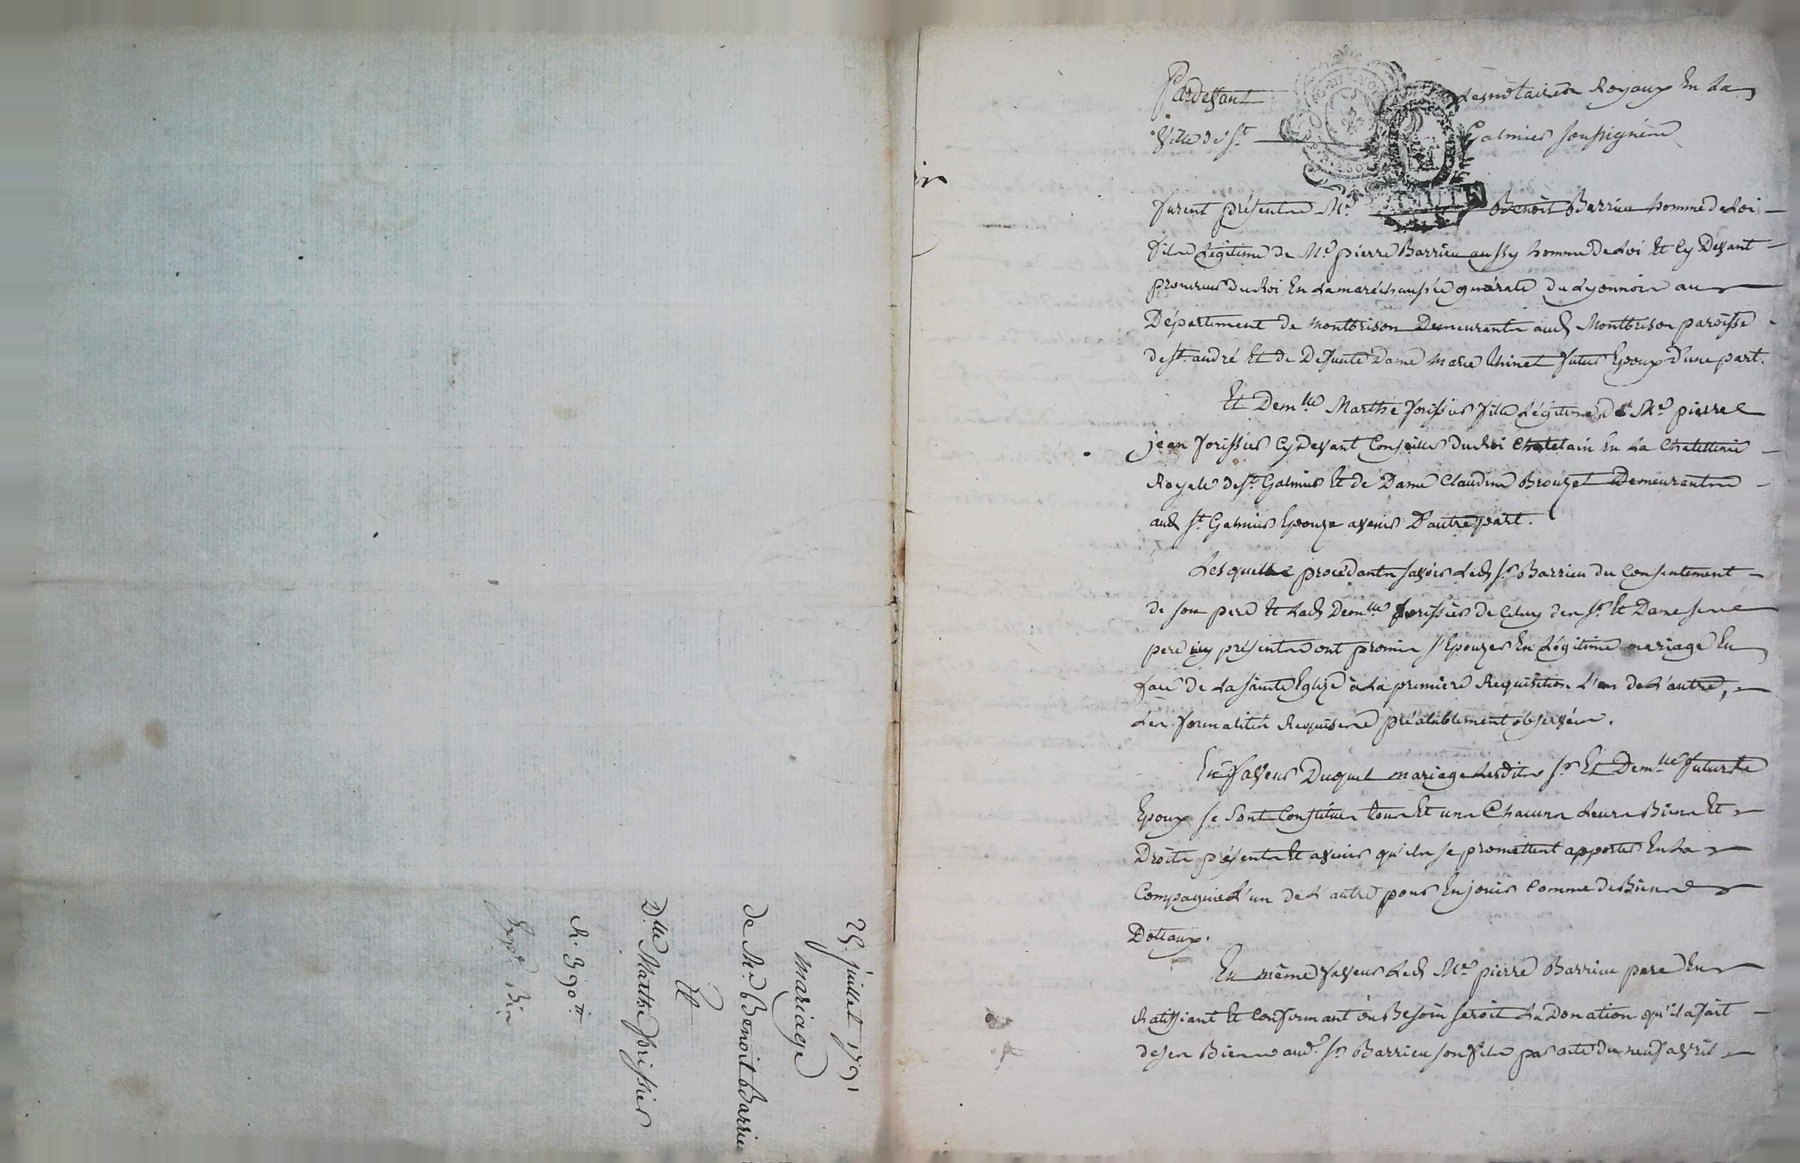 25. juillet 1791
mariage
de Mr. Benoit Barrieu
Et
Dlle Marthe forissier
R. 390 tt
Pardevant Les notaires Royaux En La
Ville de St Galmier soussignés
furent présents Me Benoit Barrieu homme de Loi
fils Légitime de Me pierre Barrieu aussy homme de Loi Et Cy Devant
procureur du Roi En La maréchaussée générale du Lyonnois au
Département de montbrison Demeurants aud. Montbrison paroisse
de st. andré Et de Defunte Dame marie Chinet futur Epoux D'une part.
Et Demlle Marthe forissier fille Légitime de Me pierre
jean forissier Cy Devant Conseiller du Roi Chatelain En La Chatellenie
Royale de st. Galmier Et de Dame Claudine Brouzet Demeurants
aud. St. Galmier Epouze avenir D'autre part.
Lesquels procédants savoir Led. sr. Barrieu du Consentement
de son pere Et Lad. Demlle forissier de Celuy des sr. Et Dame ses
pere présents ont promis s'Epouzer En Légitime mariage En
face de La sainte Eglise à La premiere Requisition L'un de L'autre,
Les formalités Requises préalablement observées.
En faveur Duquel mariage Lesdits sr. Et Demlle futurs
Epoux se sont Constitués tous Et uns Chacuns Leurs Biens Et
Droits présents Et avenir qu'ils se promettent apporter En La
Compagnie L'un de L'autre pour En jouir Comme de Biens
Dotaux.
En même faveur Led. Me pierre Barrieu pere En
Ratiffiant Et Confirmant ou Besoin seroit La Donation qu'il a fait
de ses Biens aud. sr. Barrieu son fils par acte du neuf avril